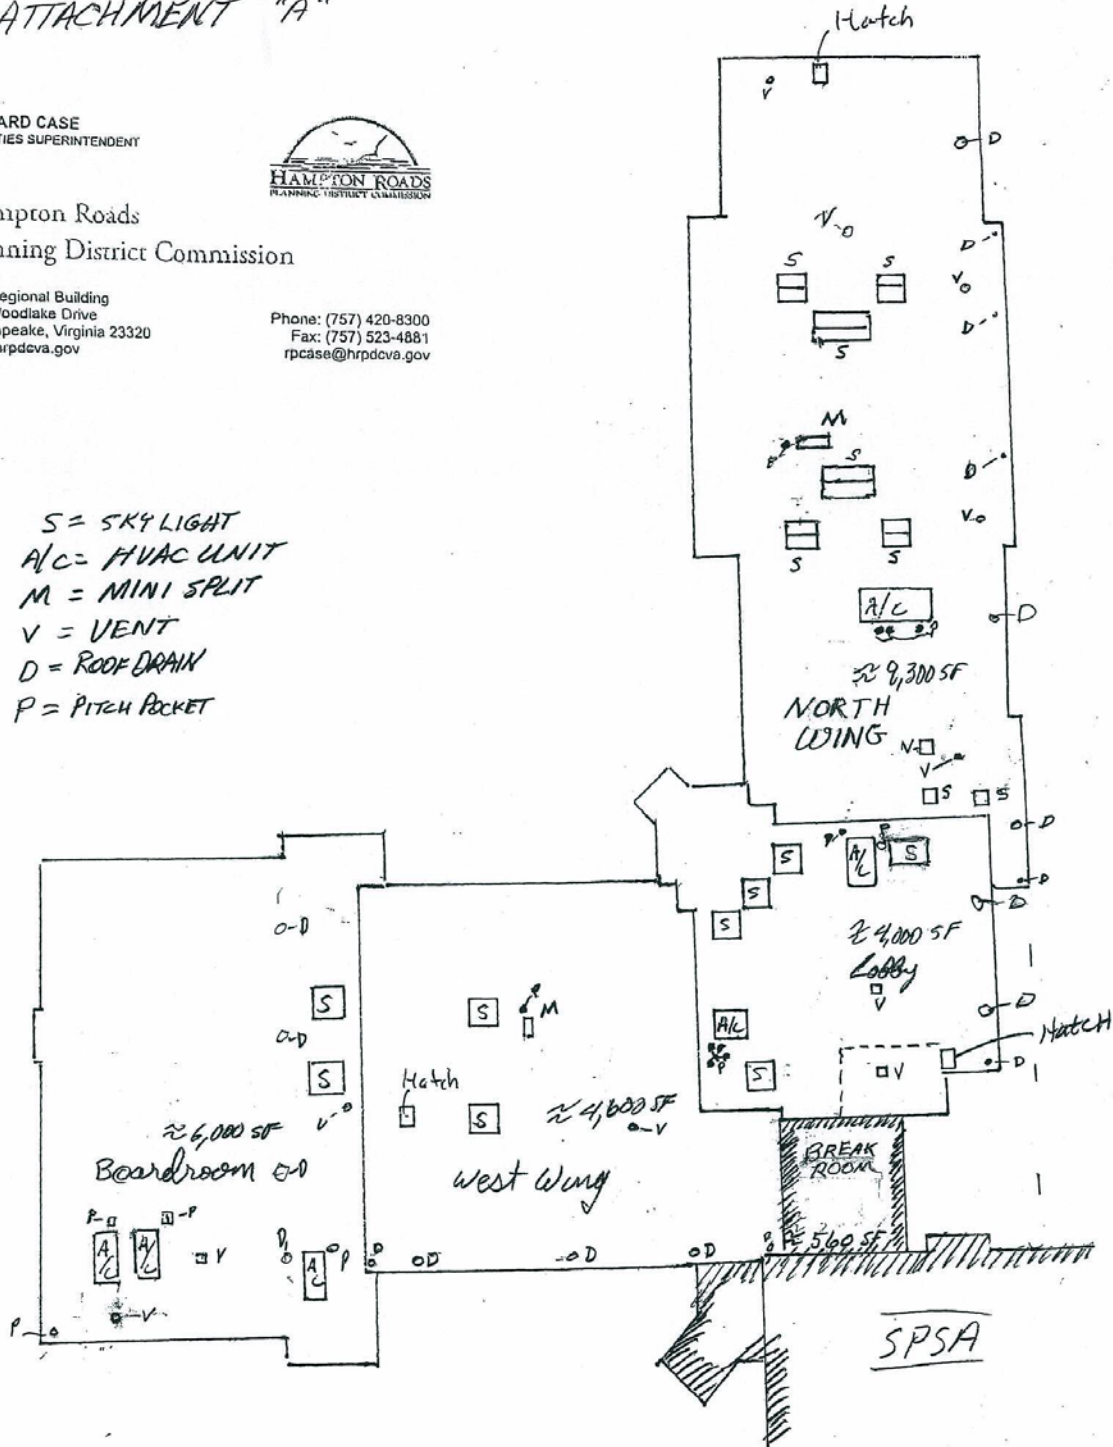 ATTACHMENT "A"
ARD CASE
TIES SUPERINTENDENT
HAMPTON ROADS
PLANNING DISTRICT COMMISSION
mpton Roads
nning District Commission
egional Building
oodlake Drive
apeake, Virginia 23320
rpdcva.gov
Phone: (757) 420-8300
Fax: (757) 523-4881
rpcase@hrpdcva.gov
S = SKYLIGHT
A/C = HVAC UNIT
M = MINI SPLIT
V = VENT
D = ROOF DRAIN
P = PITCH POCKET
Hatch
V
D
V
D
S
S
V
D
S
M
S
D
V
S
S
A/C
P
D
≈ 9,300 SF
NORTH
WING
V
V
S
S
D
P
P
A/C
S
S
D
S
D
S
≈ 4,000 SF
Lobby
V
D
A/C
P
Hatch
S
V
D
BREAK
ROOM
≈ 560 SF
D
S
P
M
S
Hatch
S
≈ 4,600 SF
V
West Wing
D
D
D
D
D
S
D
S
V
≈ 6,000 SF
Boardroom
D
P
P
A/C
A/C
V
D
A/C
P
V
P
SPSA